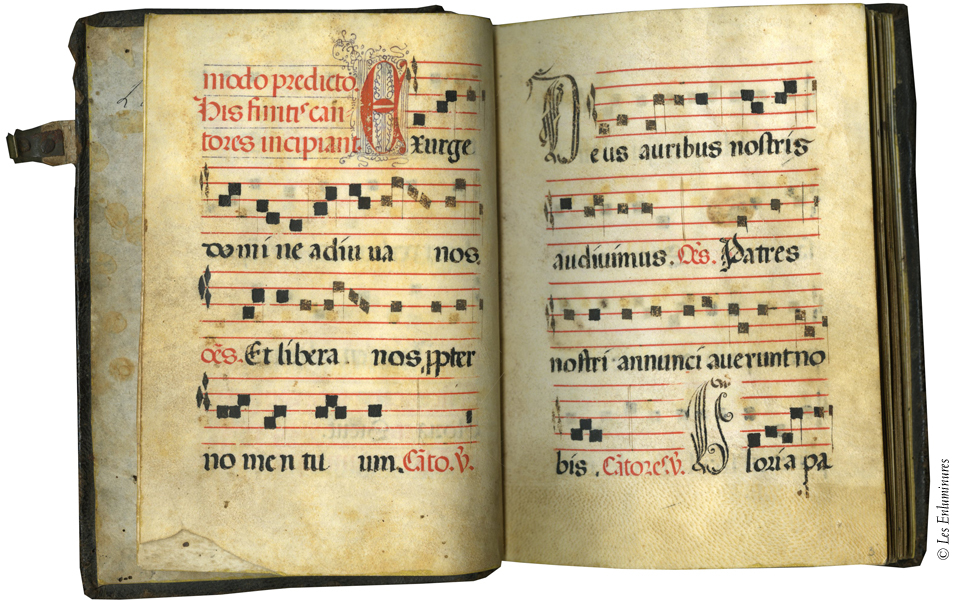 modo predicto.
His finitis can
tores incipiant Exurge
domi ne adiu ua nos.
o̅e̅s. Et libera nos, ꝓpter
no men tu um. Ca̅to. ℣.
Deus auribus nostris
audiuimus. O̅e̅s. Patres
nostri annunci auerunt no
bis. Ca̅tores. ℣. Gloria pa
© Les Enluminures